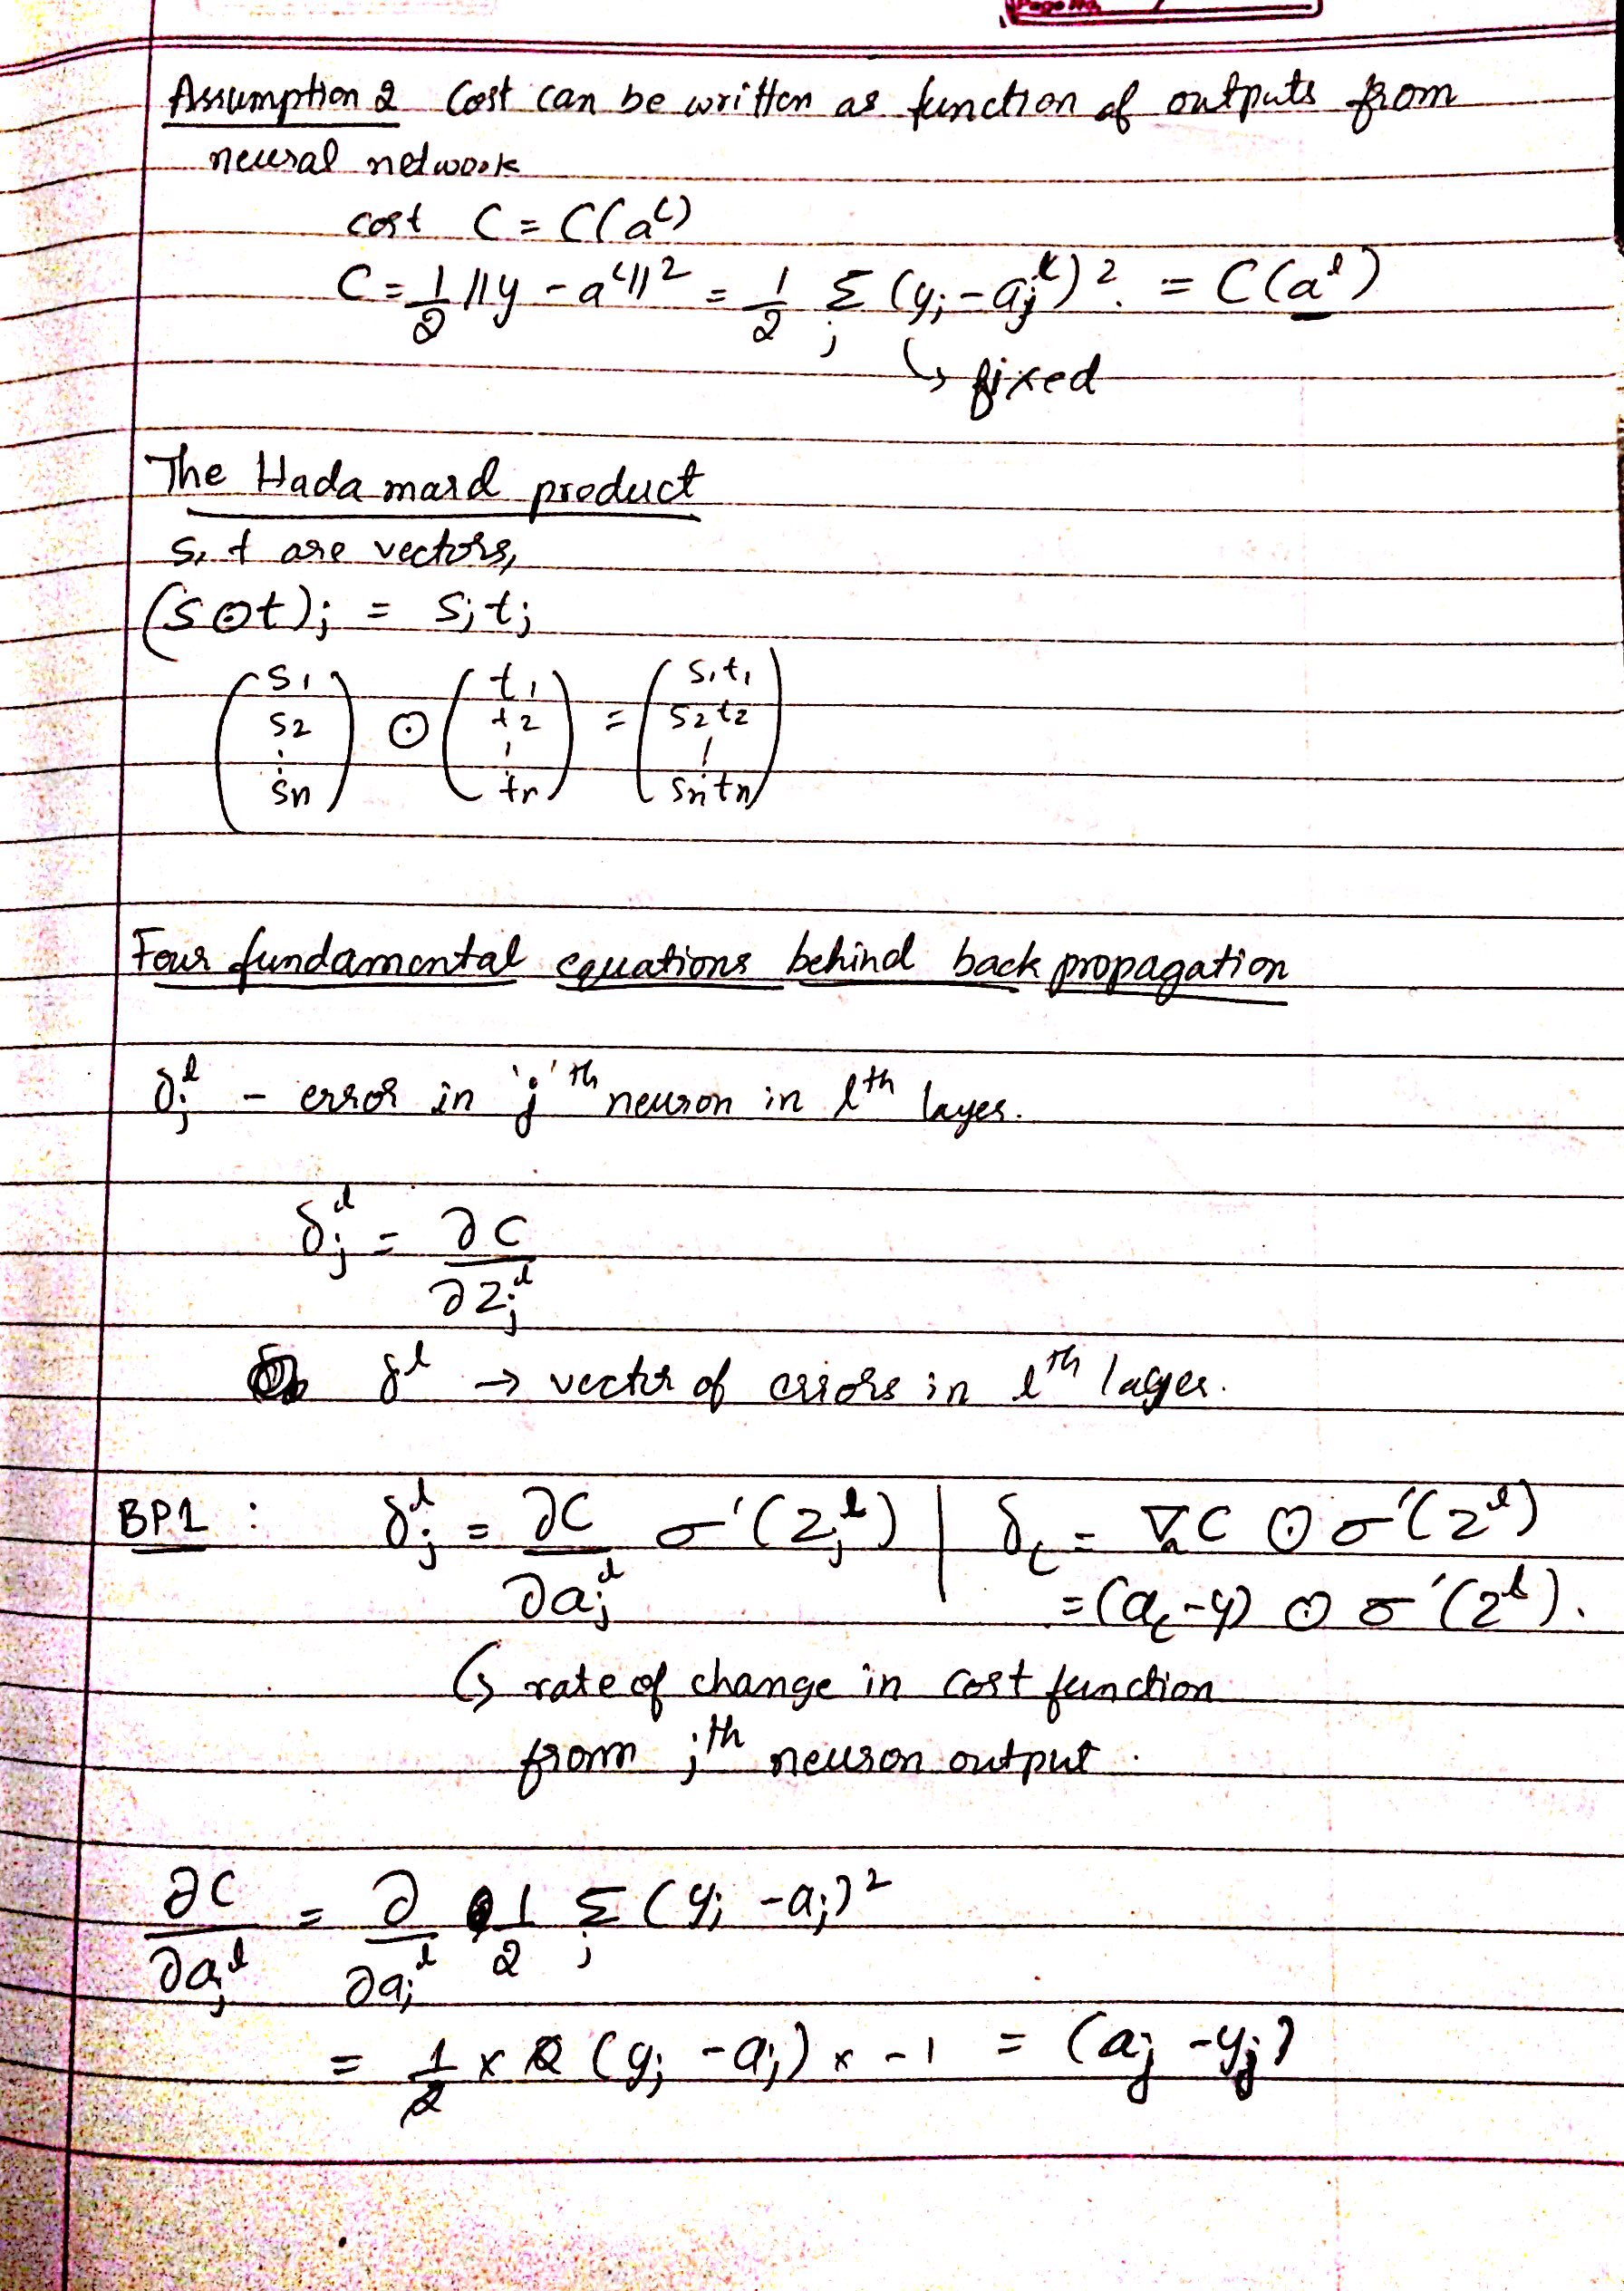 Page No.
Assumption 2 Cost can be written as function of outputs from
neural network
cost C = C(a^L)
C = 1/2 ||y - a^L||^2 = 1/2 Σ_j (y_j - a_j^L)^2. = C(a^l)
↳ fixed
The Hadamard product
s, t are vectors,
(s⊙t)_j = s_j t_j
(s1 s2 ⋮ sn) ⊙ (t1 t2 ⋮ tn) = (s1t1 s2t2 ⋮ sntn)
Four fundamental equations behind back propagation
δ_j^l - error in 'j'th neuron in lth layer.
δ_j^l = ∂C / ∂z_j^l
δ^l → vector of errors in lth layer.
BP1 : δ_j^l = ∂C/∂a_j^l σ'(z_j^l) | δ_L = ∇_a C ⊙ σ'(z^l)
= (a_L - y) ⊙ σ'(z^l).
↳ rate of change in cost function
from jth neuron output.
∂C/∂a_j^l = ∂/∂a_j^l 1/2 Σ_j (y_j - a_j)^2
= 1/2 × 2 (y_j - a_j) × -1 = (a_j - y_j)